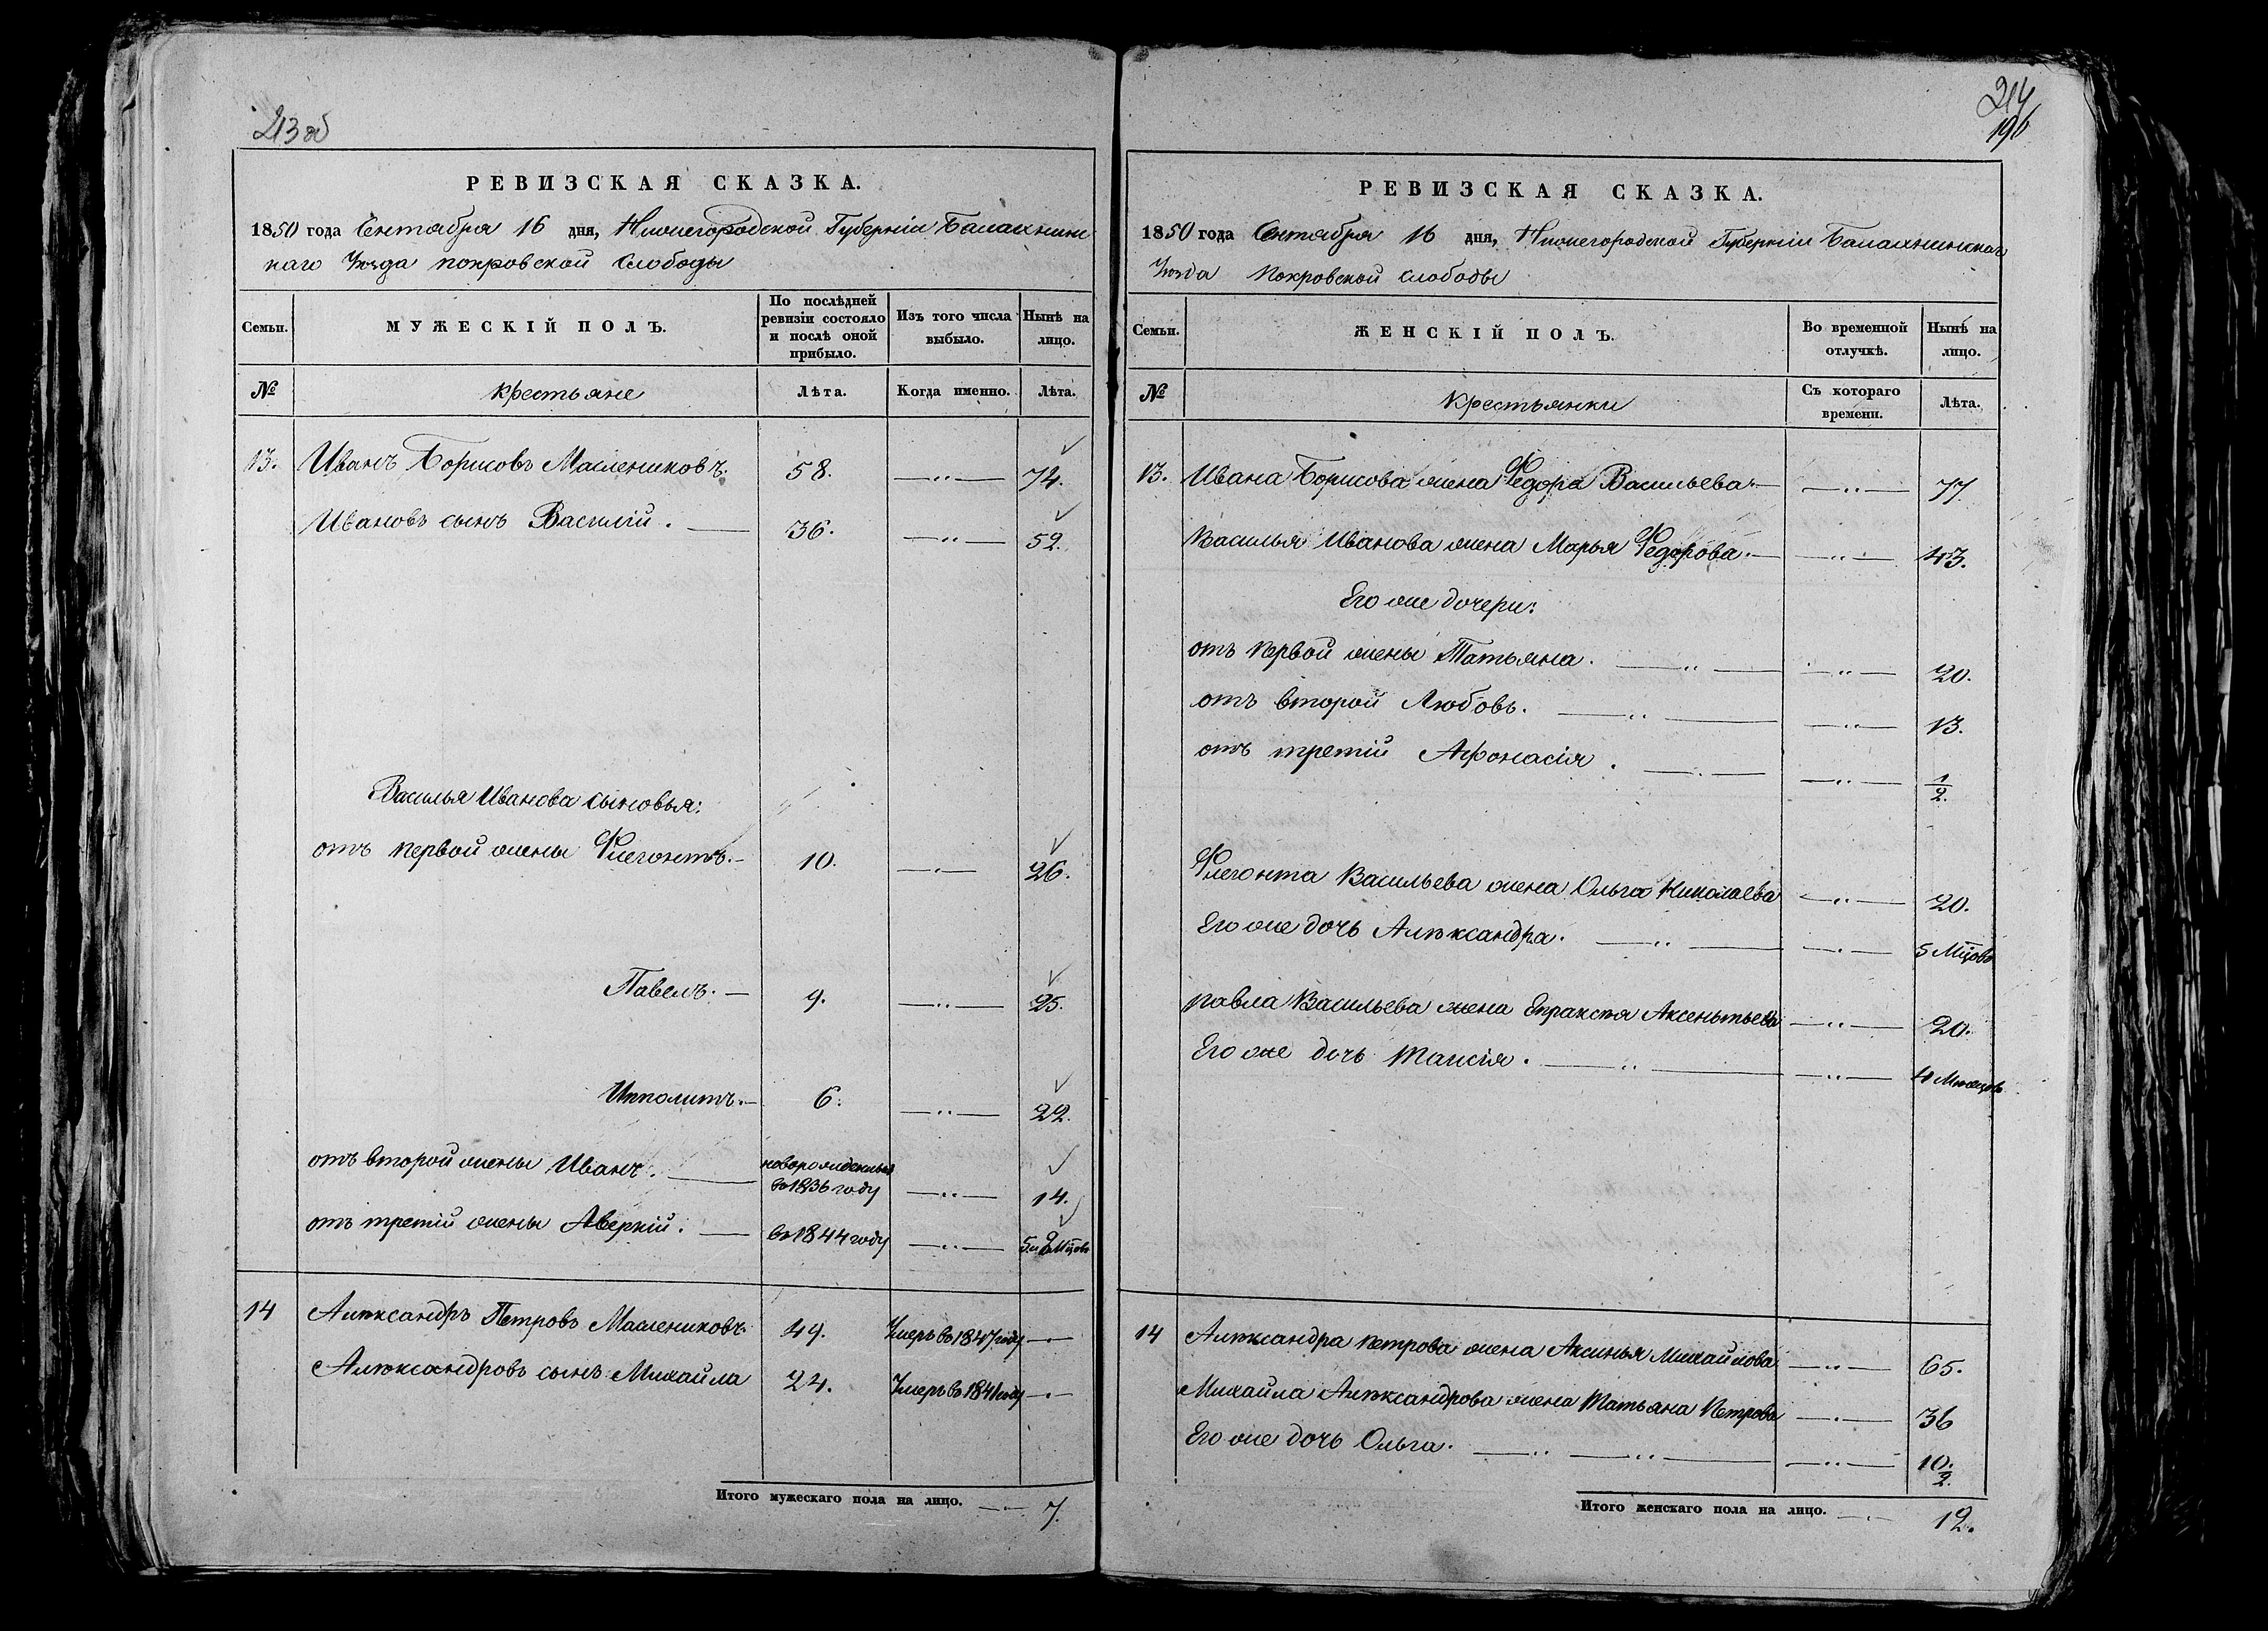 213 об
РЕВИЗСКАЯ СКАЗКА.
1850 года Сентября 16 дня, Нижегородской Губерніи Балахнин
скаго Уѣзда покровской Слободы
Семьи.
МУЖЕСКІЙ ПОЛЪ.
По послѣдней ревизіи состояло и послѣ оной прибыло.
Изъ того числа выбыло.
Нынѣ на лицо.
№
крестьяне
Лѣта.
Когда именно.
Лѣта.
13. Иванъ Борисовъ Маслениковъ. 58. —„— 74.
Ивановъ сынъ Василій. — 36. —„— 52.
Василья Иванова сыновья:
отъ первой жены Флегонтъ.— 10. —„— 26.
Павелъ. — 9. —„— 25.
Ипполитъ.— 6. —„— 22.
отъ второй жены Иванъ. — новорожденный
въ 1836 году —„— 14.
отъ третій жены Аверкій. — въ 1844 году —„— 5 и 9 Мцовъ
14 Александръ Петровъ Маслениковъ. 49. Умеръ въ 1847 году —„—
Александровъ сынъ Михайла 24. Умеръ въ 1841 году —„—
Итого мужескаго пола на лицо. —„— 7.
214
196
РЕВИЗСКАЯ СКАЗКА.
1850 года Сентября 16 дня, Нижегородской Губерніи Балахнинскаго
Уѣзда Покровской слободы
Семьи.
ЖЕНСКІЙ ПОЛЪ.
Во временной отлучкѣ.
Нынѣ на лицо.
№
крестьянки
Съ котораго времени.
Лѣта.
13. Ивана Борисова жена Федора Васильева.— —„— 77.
Василья Иванова жена Марья Федорова.— —„— 43.
Его же дочери:
отъ первой жены Татьяна. —„— —„— 20.
отъ второй Любовь. —„— —„— 13.
отъ третій Афонасія. —„— —„— 1/2.
Флегонта Васильева жена Ольга Николаева —„— 20.
Его же дочь Александра. —„— —„— 5 Мцовъ
павла Васильева жена Епраксія Аксентьева —„— 20.
Его же дочь Таисія. —„— —„— 4 Месяцовъ
14 Александра петрова жена Аксинья Михайлова —„— 65.
Михайла Александрова жена Татьяна Петрова —„— 36
Его же дочь Ольга. —„— —„— —„— 10. 1/2.
Итого женскаго пола на лицо. —„— 12.